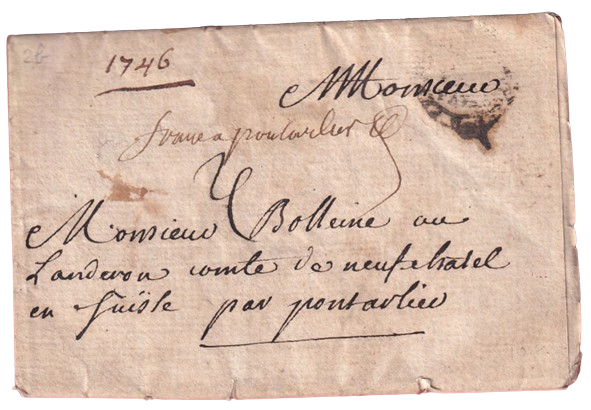 2b
1746
Monsieur
franc a pontarlier
Monsieur Bolleine au
Landeron comte de neufchatel
en Suisse par pontarlier